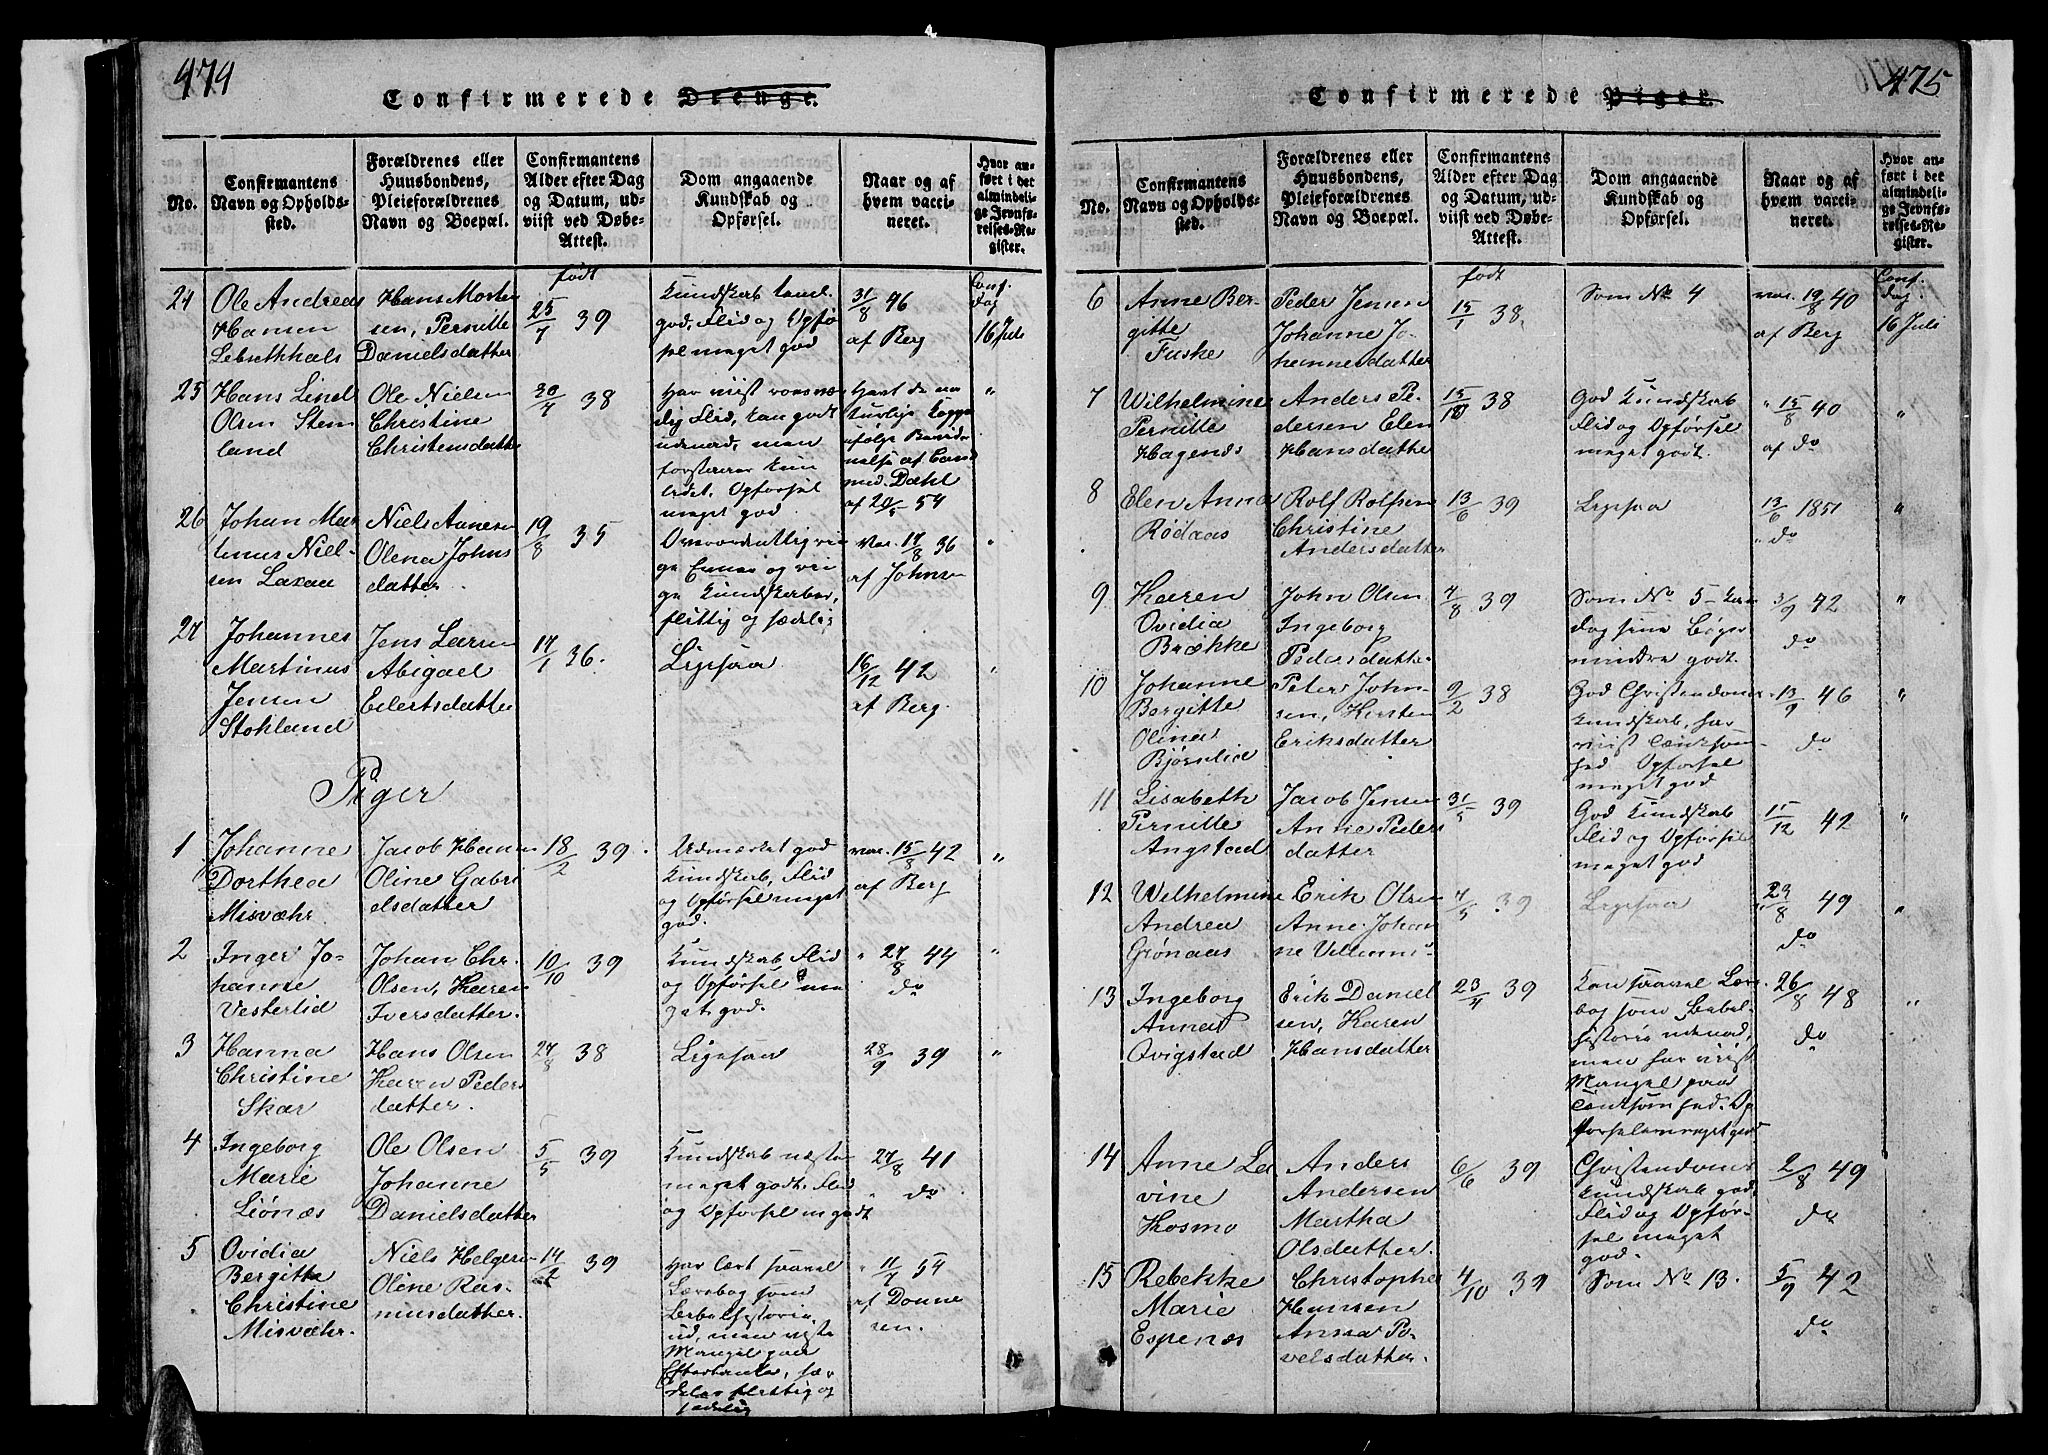 474
Confirmerede Drenge.
No.
Confirmantens
Navn og Opholds-
sted.
Forældrenes eller
Huusbondens,
Pleieforældrenes
Navn og Boepæl.
Confirmantens
Alder efter Dag
og Datum, ud-
viist ved Døbe-
Attest.
Dom angaaende
Kundskab og
Opførsel.
Naar og af
hvem vacci-
neret.
Hvor an-
ført i det
almindeli-
ge Jevnfø-
relses-Re-
gister.
født
Conf.
dag
24
Ole Andreas
Hansen
Lebsethhals
Hans Morten
sen, Pernille
Danielsdatter
25/7 39
god, Flid og Opfø
sel meget god
31/8 46
af Berg
16 Juli
25
Hans Lind
Olsen Stem
land
Ole Nielsen
Christine
Christensdatte
20/7 38
Har viist roesvær
dig Flid, kan godt
udenad, men
forstaaer kun
lidet. Opførsel
meget god
Havt de na
turlige Kopper
ifølge Bevid
nelse af Cand
med. Dahl
af 20/5 54
"
26
Johan Mar
tinus Niel-
sen Laxaa
Niels Aanesen
Olena Johns
datter.
19/8 35
Overordentlig rin
ge Evner og rin
ge Kundskaber,
flittig og sædelig
Vac. 17/8 36
af Johnsen
"
27
Johannes
Martinus
Jensen
Stokland
Jens Larsen
Abigael
Eilertsdatter
17/1 36.
Ligesaa
16/12 42
af Berg.
"
Piger
1
Johanne
Dorthea
Misvæhr
Jacob Hansen
Oline Gabri
elsdatter
18/2 39.
Udmærket god
Kundskab, Flid
og Opførsel meget
god.
vac. 15/8 42
af Berg
"
2
Inger Jo-
hanne
Vesterlid
Johan Chr.
Olsen, Karen
Iversdatter.
10/10 39
Kundskab Flid
og Opførsel me
get god.
" 27/8 44
do
"
3
Hanna
Christine
Skar
Hans Olsen
Karen Peders
datter.
27/8 38
Ligesaa
28/9 39
"
4
Ingeborg
Marie
Liønæs
Ole Olsen
Johanne
Danielsdatter
5/5 39
Kundskab næsten
meget godt. Flid
og Opførsel m godt
27/8 41
" do
5
Ovidia
Bergitte
Christine
Misvæhr.
Niels Helgesen
Oline Ras-
musdatter.
14/2 39
Har lært saavel
Lærebog som
Bibelhistorie
ud, men røbe
Mangel paa
Eftertanke, sæ
deles flittig og
sædelig
" 11/7 54
af Donne
sen.
475
Confirmerede Piger.
No.
Confirmantens
Navn og Opholds-
sted.
Forældrenes eller
Huusbondens,
Pleieforældrenes
Navn og Boepæl.
Confirmantens
Alder efter Dag
og Datum, ud-
viist ved Døbe-
Attest.
Dom angaaende
Kundskab og
Opførsel.
Naar og af
hvem vacci-
neret.
Hvor an-
ført i det
almindeli-
ge Jevnfø-
relses-Re-
gister.
født
Conf.
dag
6
Anne Ber-
gitte
Fuske
Peder Jensen
Johanne Jo-
hannesdatter
15/1 38.
Som No 4
vac. 19/8 40
af Berg
16 Juli
7
Wilhelmine
Pernille
Hagenæs
Anders Pe-
dersen Elen
Hansdatter
15/10 38
God Kundskab
Flid og Opførsel
meget godt.
" 15/8 40
af do
"
8
Elen Anna
Rødaas
Rolf Rolfsen
Christine
Andersdatter
13/6 39
Ligesaa
13/6 1851
" do
"
9
Karen
Ovidia
Brække
John Olsen
Ingeborg
Pedersdatter.
4/8 39
Som No 5 - kan
dog sine Bøger
mindre godt.
3/9 42
do
"
10
Johanne
Bergitte
Olina
Bjørnlid
Peter John-
sen, Kirsten
Eriksdatter
9/2 38
God Christendoms
kundskab, har
viist Tænksom
hed Opførsel
meget god
" 13/9 46
do
"
11
Lisabeth
Pernille
Angstad
Jacob Jensen
Anne Peders
datter
31/5 39
God Kundskab
Flid og Opførsel
meget god
15/12 42
"
12
Wilhelmine
Andrea
Grønaas
Erik Olsen
Anne Johan
ne Villumsd
4/5 39
Ligesaa
" 29/8 49
do
"
13
Ingeborg
Anna
Qvigstad
Erik Daniel
sen, Karen
Hansdatter
23/4 39
Kan saavel Lære-
bog som Bibel-
historie udenad,
men har viist
Mangel paa
Tænksomhed. Op
førsel meget god
26/8 48
do
"
14
Anne Le
vine
Kosmo
Anders
Andersen
Martha
Olsdatter.
6/6 39
Christendoms
kundskab god
Flid og Opfør-
sel meget
god.
2/8 49
do
15
Rebekke
Marie
Espenæs
Christopher
Hansen
Anna Po
velsdatter.
4/10 39
Som No 13.
5/9 42
do